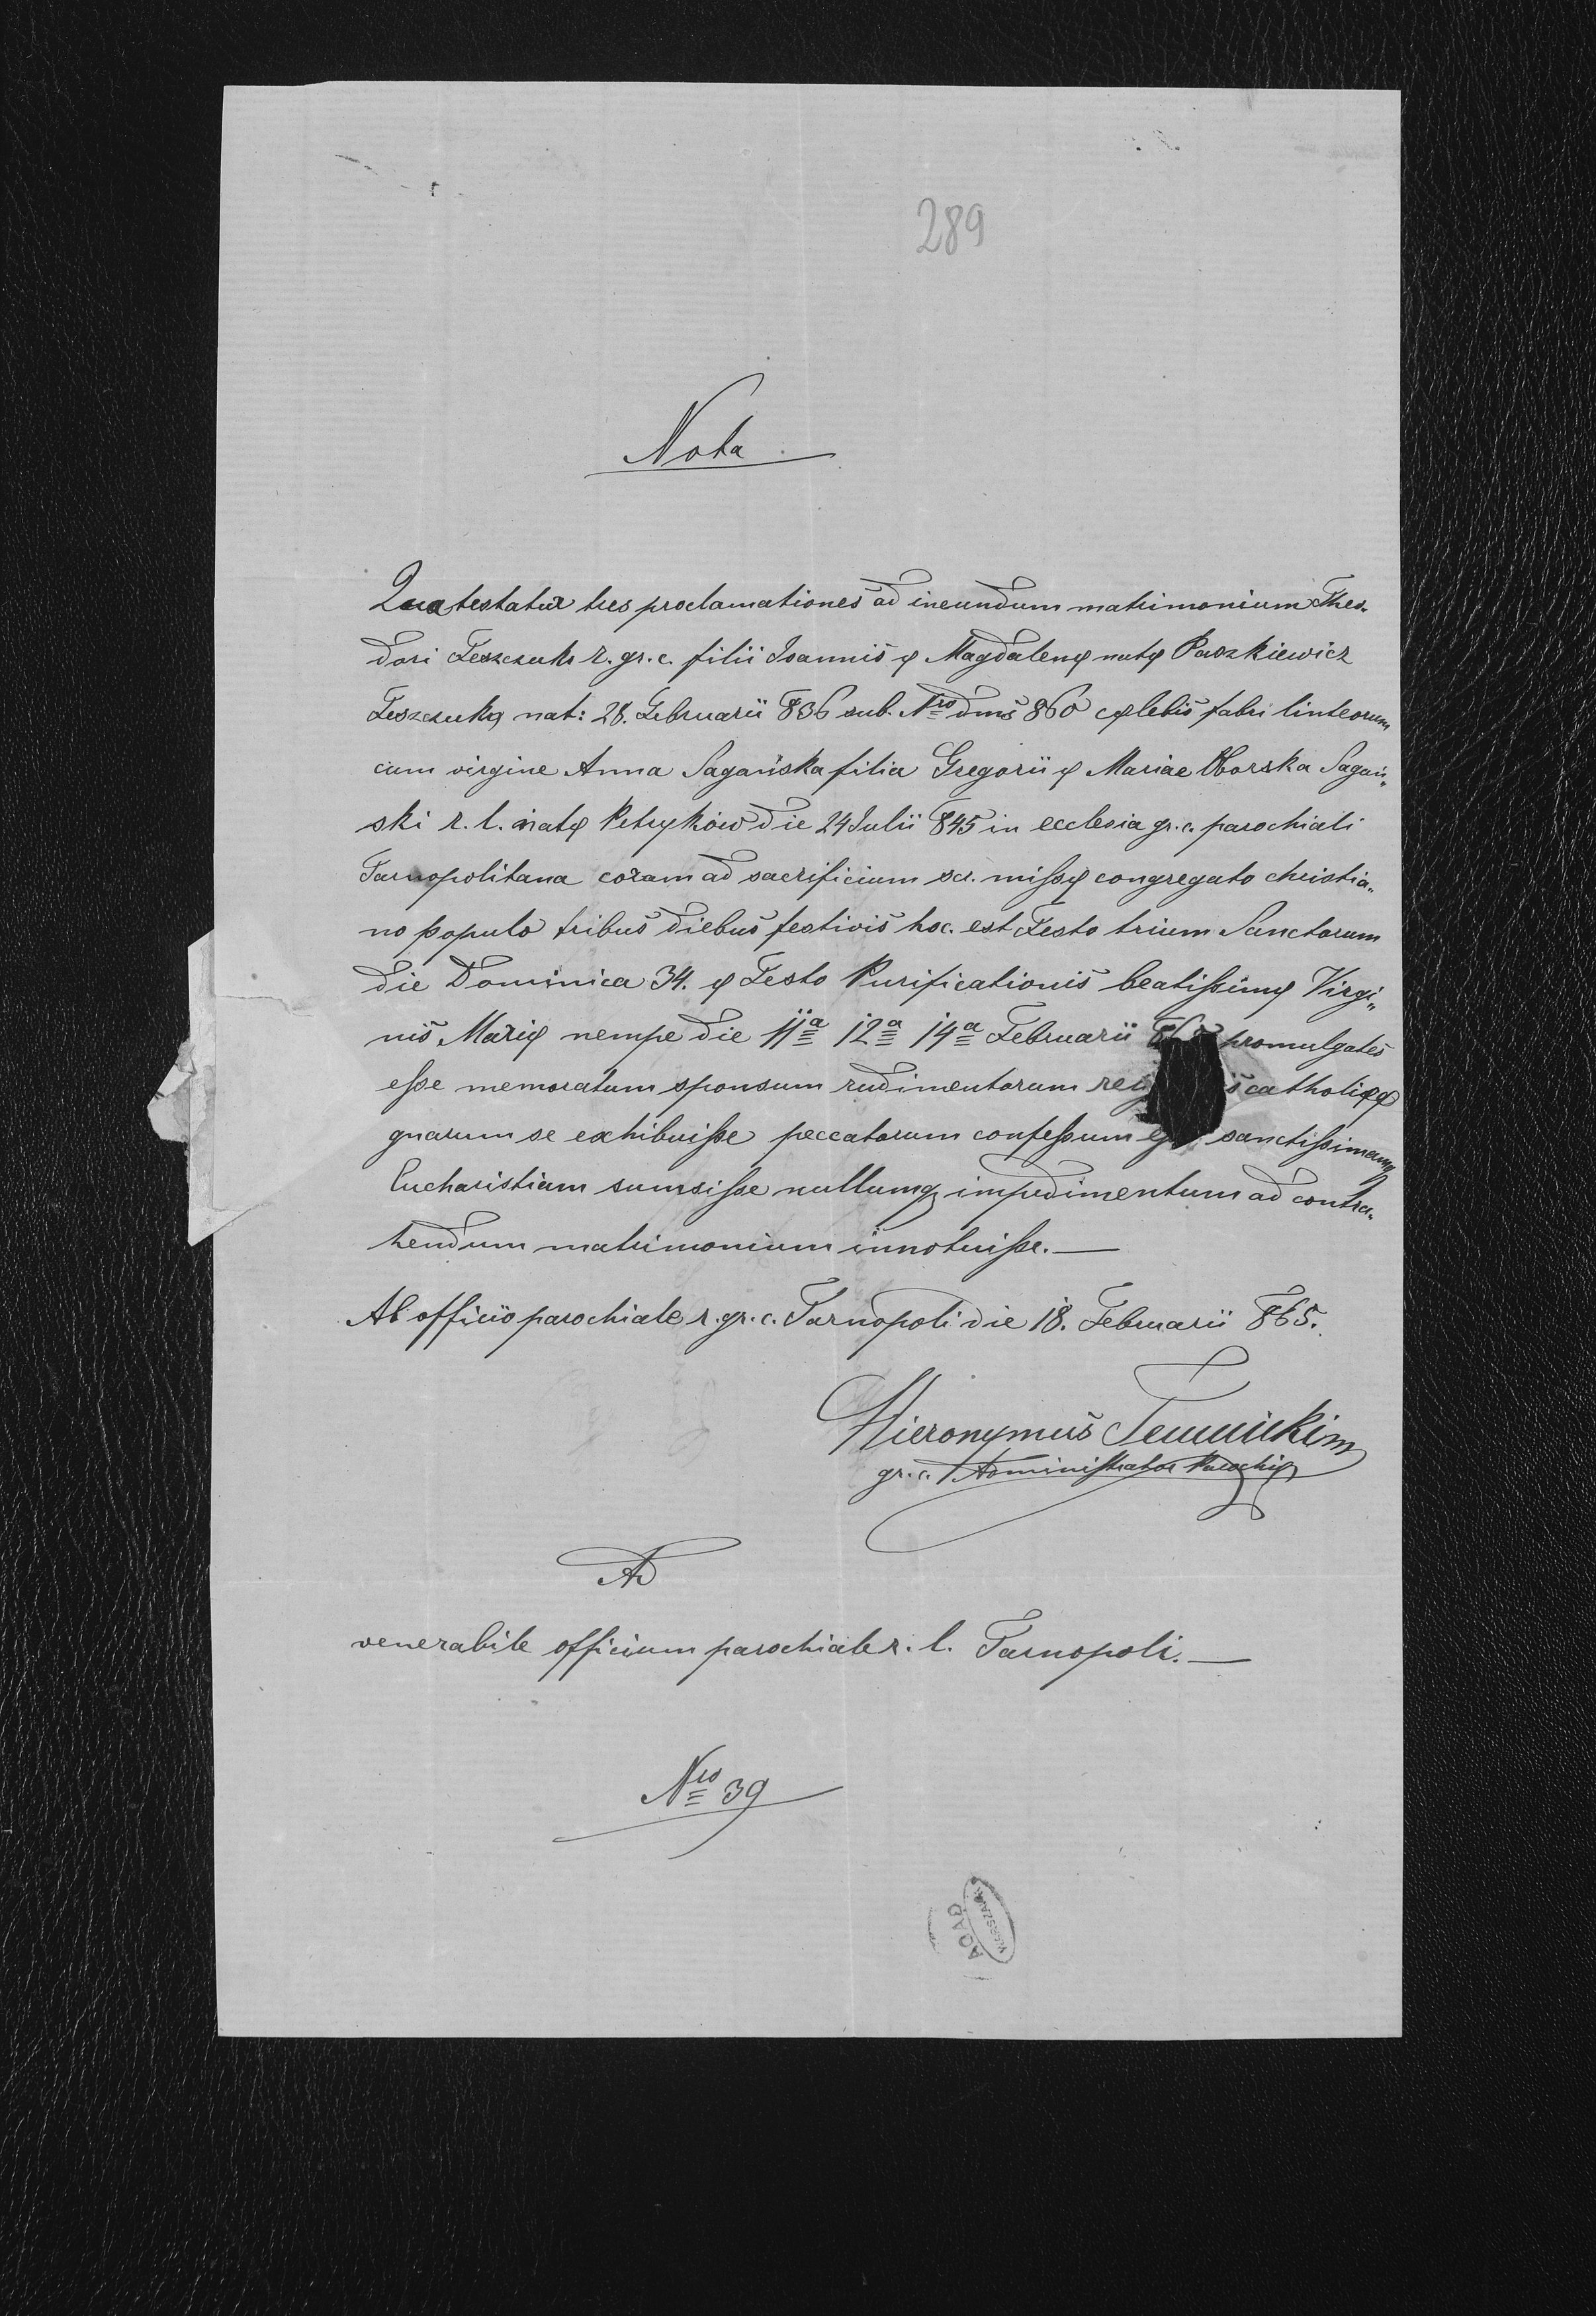 289
Nota
Qua testatur tres proclamationes ad ineundum matrimonium Theo-
dori Leszczuk r. gr. c. filii Joannis & Magdalenę natę Paszkiewicz
Leszczuką nat: 28. Februarii 836 sub. Nro dms 860 cęlebis fabri linteorum
cum virgine Anna Sagańska filia Gregorii & Mariae Oborska Sagań„
ski r. l. natę Petryków die 24 Julii 845 in ecclesia gr. c. parochiali
Tarnopolitana coram ad sacrificium scr. missę congregato christia„
no populo tribus diebus festivis hoc. est Festo trium Sanctorum
die Dominica 34. & Festo Purificationis beatissimę Virgi„
nis Marię nempe die 11a 12a 14a Februarii promulgates
esse memoratum sponsum rudimentorum catholicę
gnarum se exhibuisse peccatorum confessum sanctissimam
Eucharistiam sumsisse nullumq impedimentum ad contra-
hendum matrimonium innotuisse.—
Ab officio parochiale r. gr. c. Tarnopoli die 18. Februarii 865.
Hieronymus
gr. c. Administrator Parochię
Ad
venerabile officium parochiale r. l. Tarnopoli.—
Nro 39
AGAD
WARSZAWA